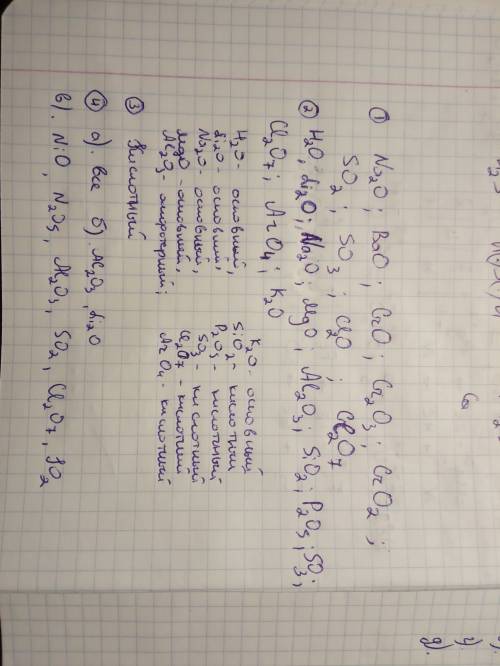 ① Na₂O; BaO; CrO; Cr₂O₃; CrO₂;
SO₂; SO₃; Cl₂O; Cl₂O7
② H₂O; Li₂O; Na₂O; MgO; Al₂O₃; SiO₂; P₂O5; SO₃;
Cl₂O7; ArO₄; K₂O
H₂O - основный, K₂O - основный
Li₂O - основный, SiO₂ - кислотный
Na₂O - основный, P₂O5 - кислотный
MgO - основный, SO₃ - кислотный
Al₂O₃ - амфотерный; Cl₂O7 - кислотный
ArO₄ - кислотный
③ Кислотный
④ а). Все б) Al₂O₃, Li₂O
в). NiO, N₂O5, Al₂O₃, SO₂, Cl₂O7,